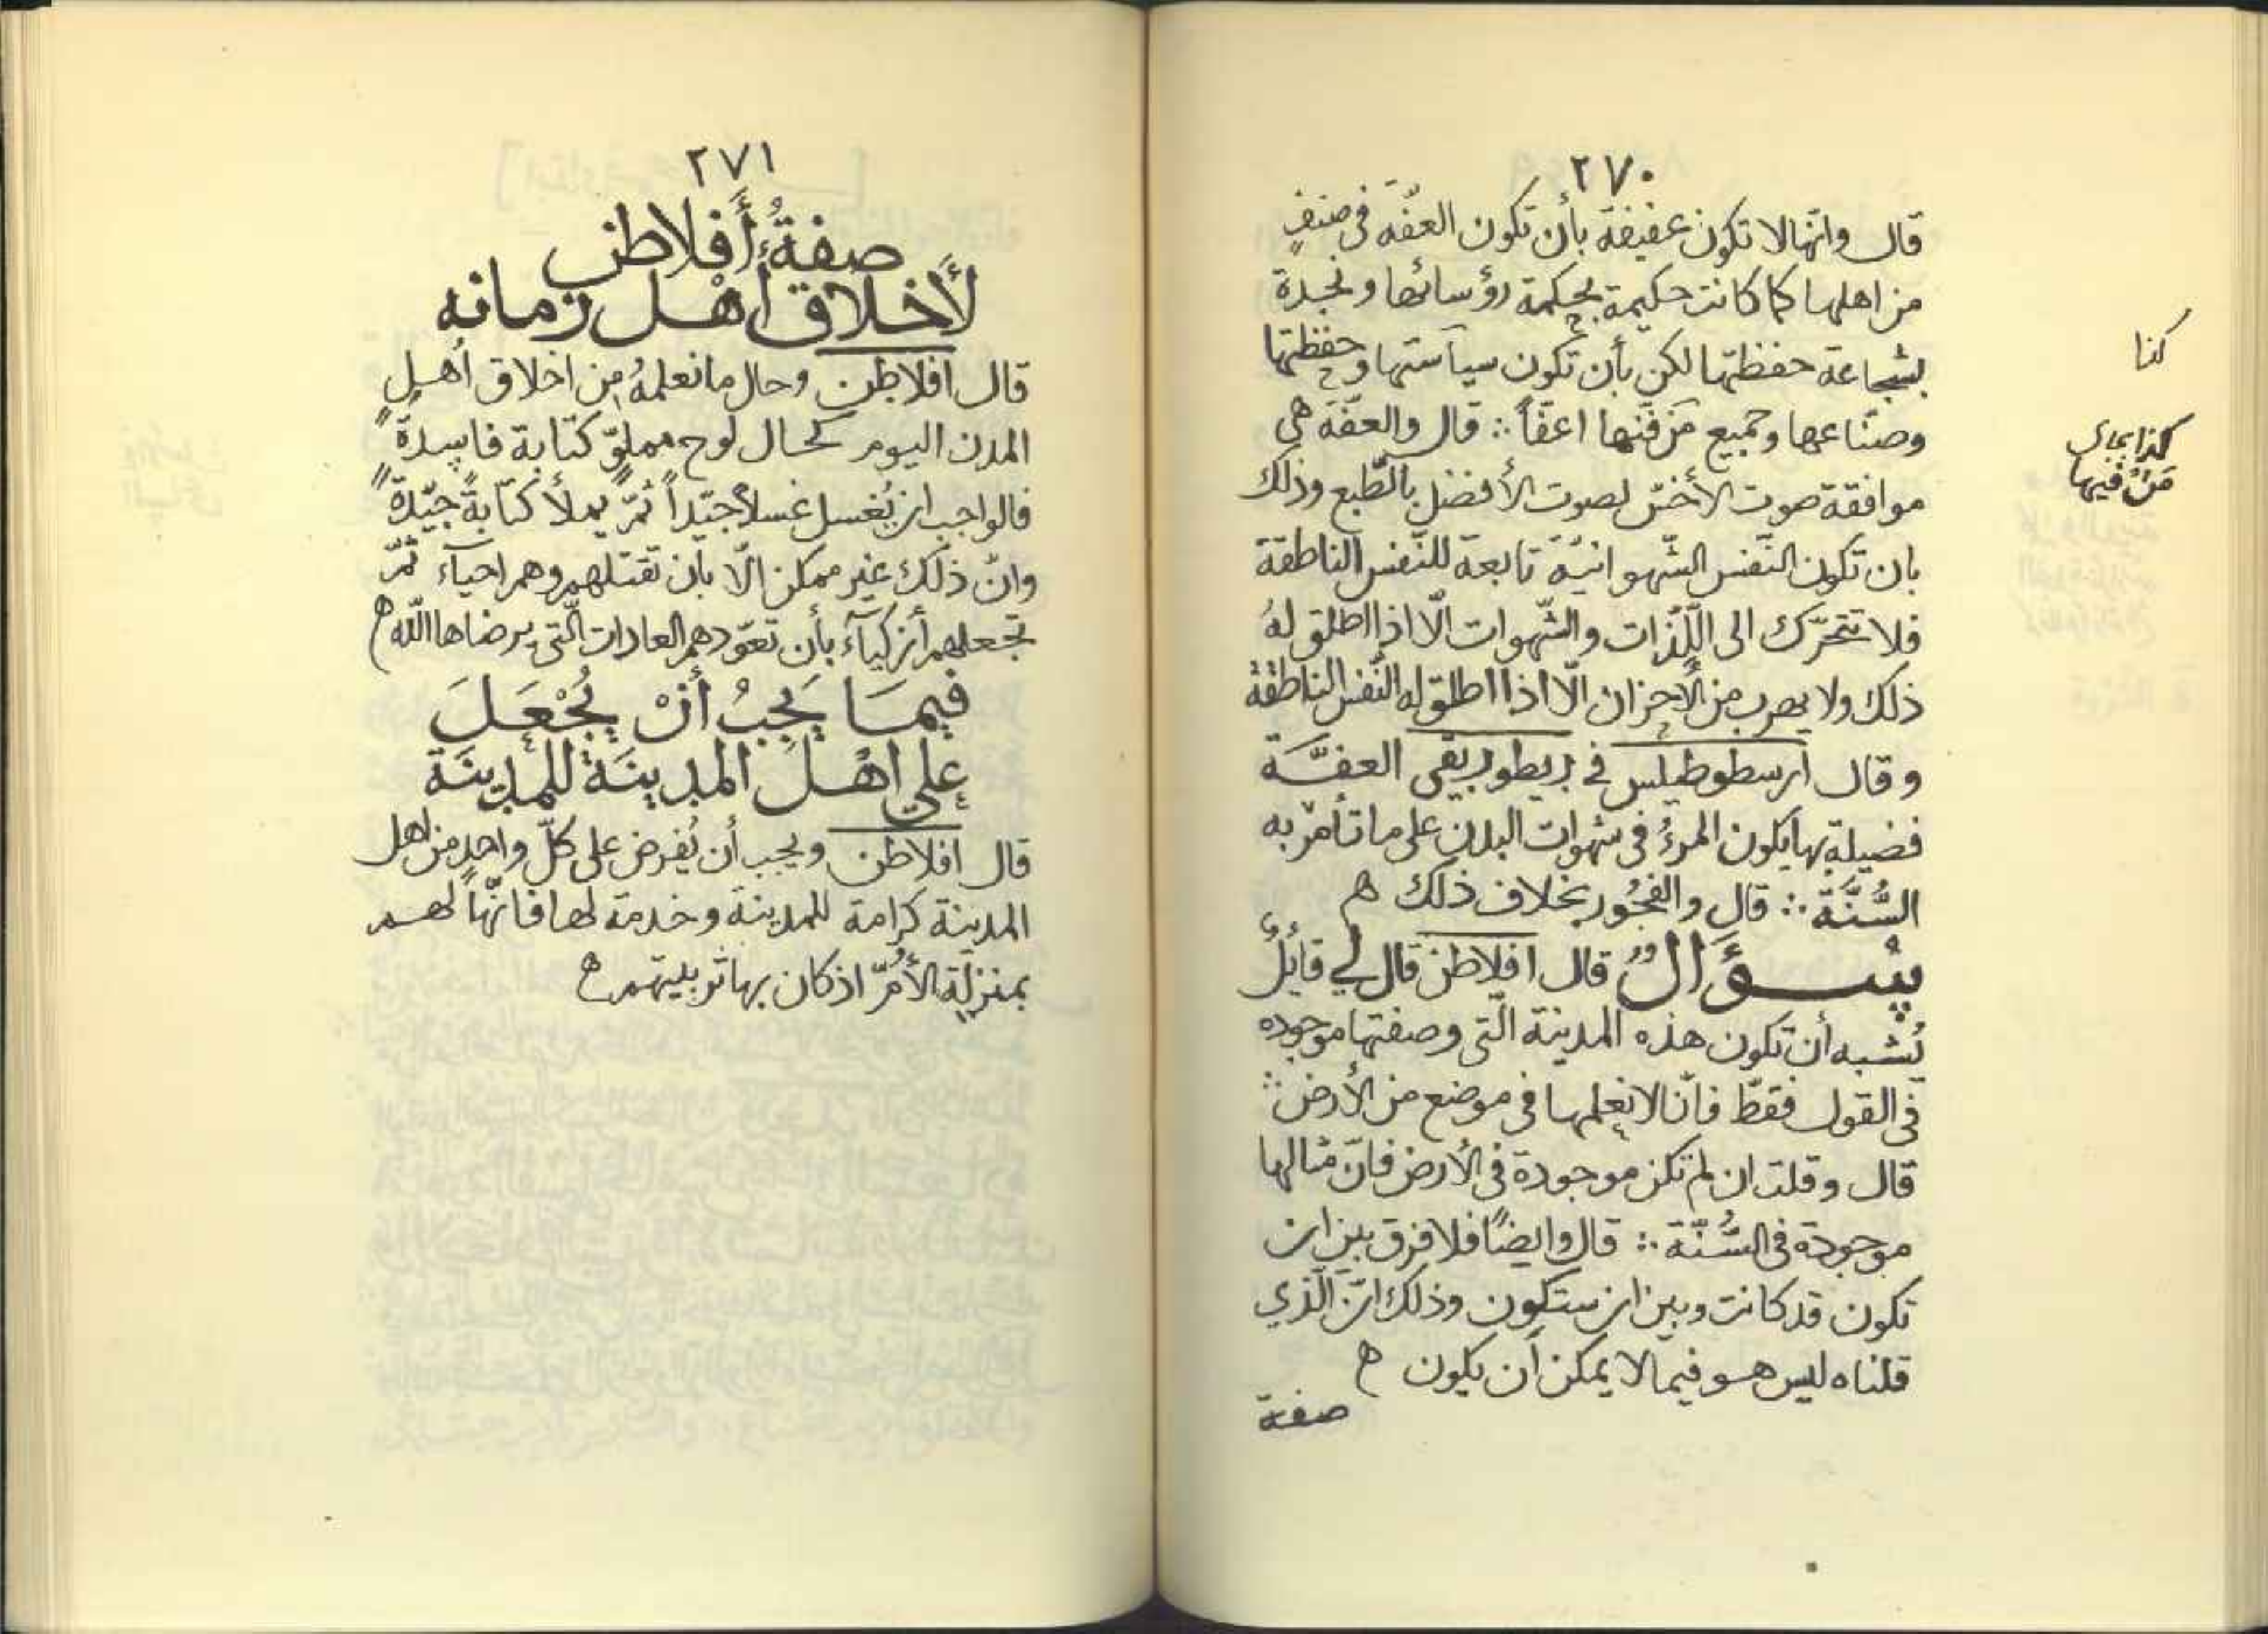 ٢٧٠
قال وانّها لا تكون عفيفة بأن تكون العفّه فى صنفٍ
من اهلها كما كانت حكيمة بحكمة رؤسائها ونجدة
بشجاعة حفظتها لكن بأن تكون سياستها وحفظتها
وصنّاعها وجميع من فنها اعفّاً ∴ قال والعفّه هي
موافقة صوت الأخسّ لصوت الأفضل بالطّبع وذلك
بان تكون النّفس الشّهوانيّة تابعة للنّفس الناطقة
فلا تتحرّك الى اللّذات والشّهوات الّا اذا اطلق لهُ
ذلك ولا يهرب من الأحزان الّا اذا اطلق له النّفس الناطقة
وقال ارسطوطيلس في ريطوريقى العفَّة
فضيلة بها يكون المرءُ فى شهوات البدن على ما تأمر به
السُّنَّة ∴ قال والفجُور بخلاف ذلك ه
سؤَالٌ قال افلاطن قال لي قائِلٌ
يُشبه أن تكون هذه المدينة الّتى وصفتها موجوده
فى القول فقطّ فانّا لا نعلمها فى موضع من الأرض ∴
قال وقلت ان لم تكن موجودة فى الأرض فانّ مثالها
موجودة فى السُّنّة ∴ قال وايضًا فلا فرق بين ان
تكون قد كانت وبين ان ستكون وذلك انّ الّذي
قلناه ليس هو فيما لا يمكن أن يكون ه
صفة
كذا
مَنْ فيها
٢٧١
صفةُ أَفلاطن
لأَخلاق أهْل زمانه
قال افلاطن وحال ما نعلمهُ من اخلاق أهل
المدن اليوم كحال لوح مملوّ كتابة فاسدةً
فالواجب ان يُغسل غسلاً جيّداً ثمّ يملأ كتابةً جيّدةً
وانّ ذلك غير ممكن الّا بان تقتلهم وهم احيآء ثمّ
تجعلهم أزكيآء بأن تعوّدهم العادات الّتى يرضاها اللّه ه
فيمَا يَجِبُ أنْ يُجْعَلَ
على اهْلِ المدينَة للمدِينَة
قال افلاطن ويجب أن يُفرض على كلّ واحدٍ من اهل
المدينة كرامة للمدينة وخدمة لها فانّها لهم
بمنزلة الأُمّ اذ كان بها تربيتهم ه